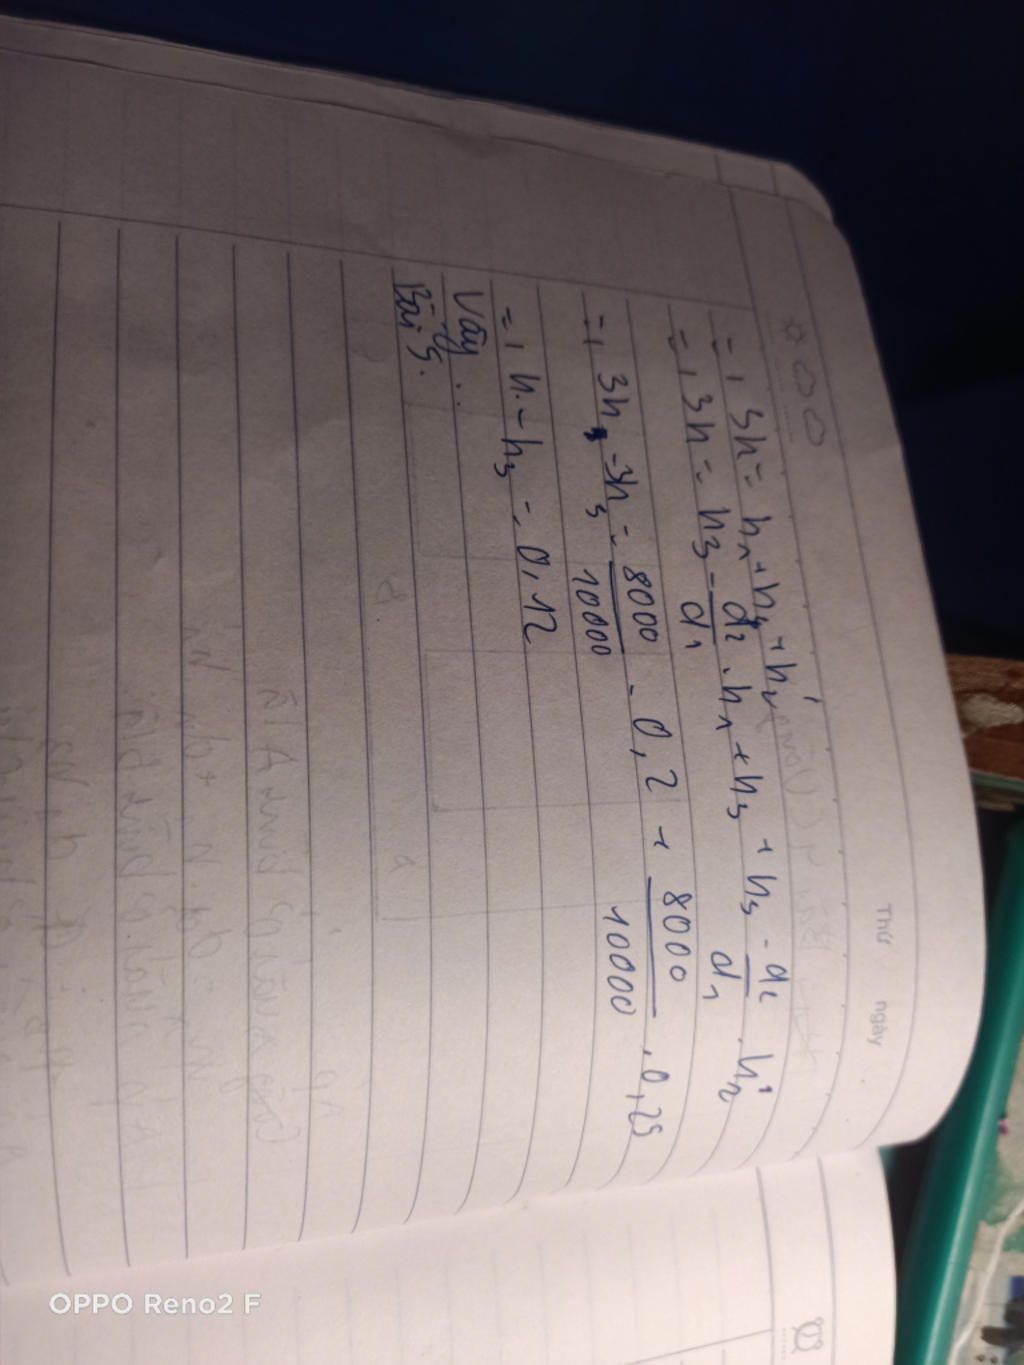 Thứ ngày
=, 3h = h₁ + h₃ + h₂'
=, 3h = h₃ - d₂/d₁ . h₁ + h₃ + h₃ - d₂/d₁ . h₂'
=, 3h - 3h₃ = 8000/10000 . 0,2 + 8000/10000 . 0,25
=, h - h₃ = 0,12
Vậy ...
Bài 5.
OPPO Reno2 F